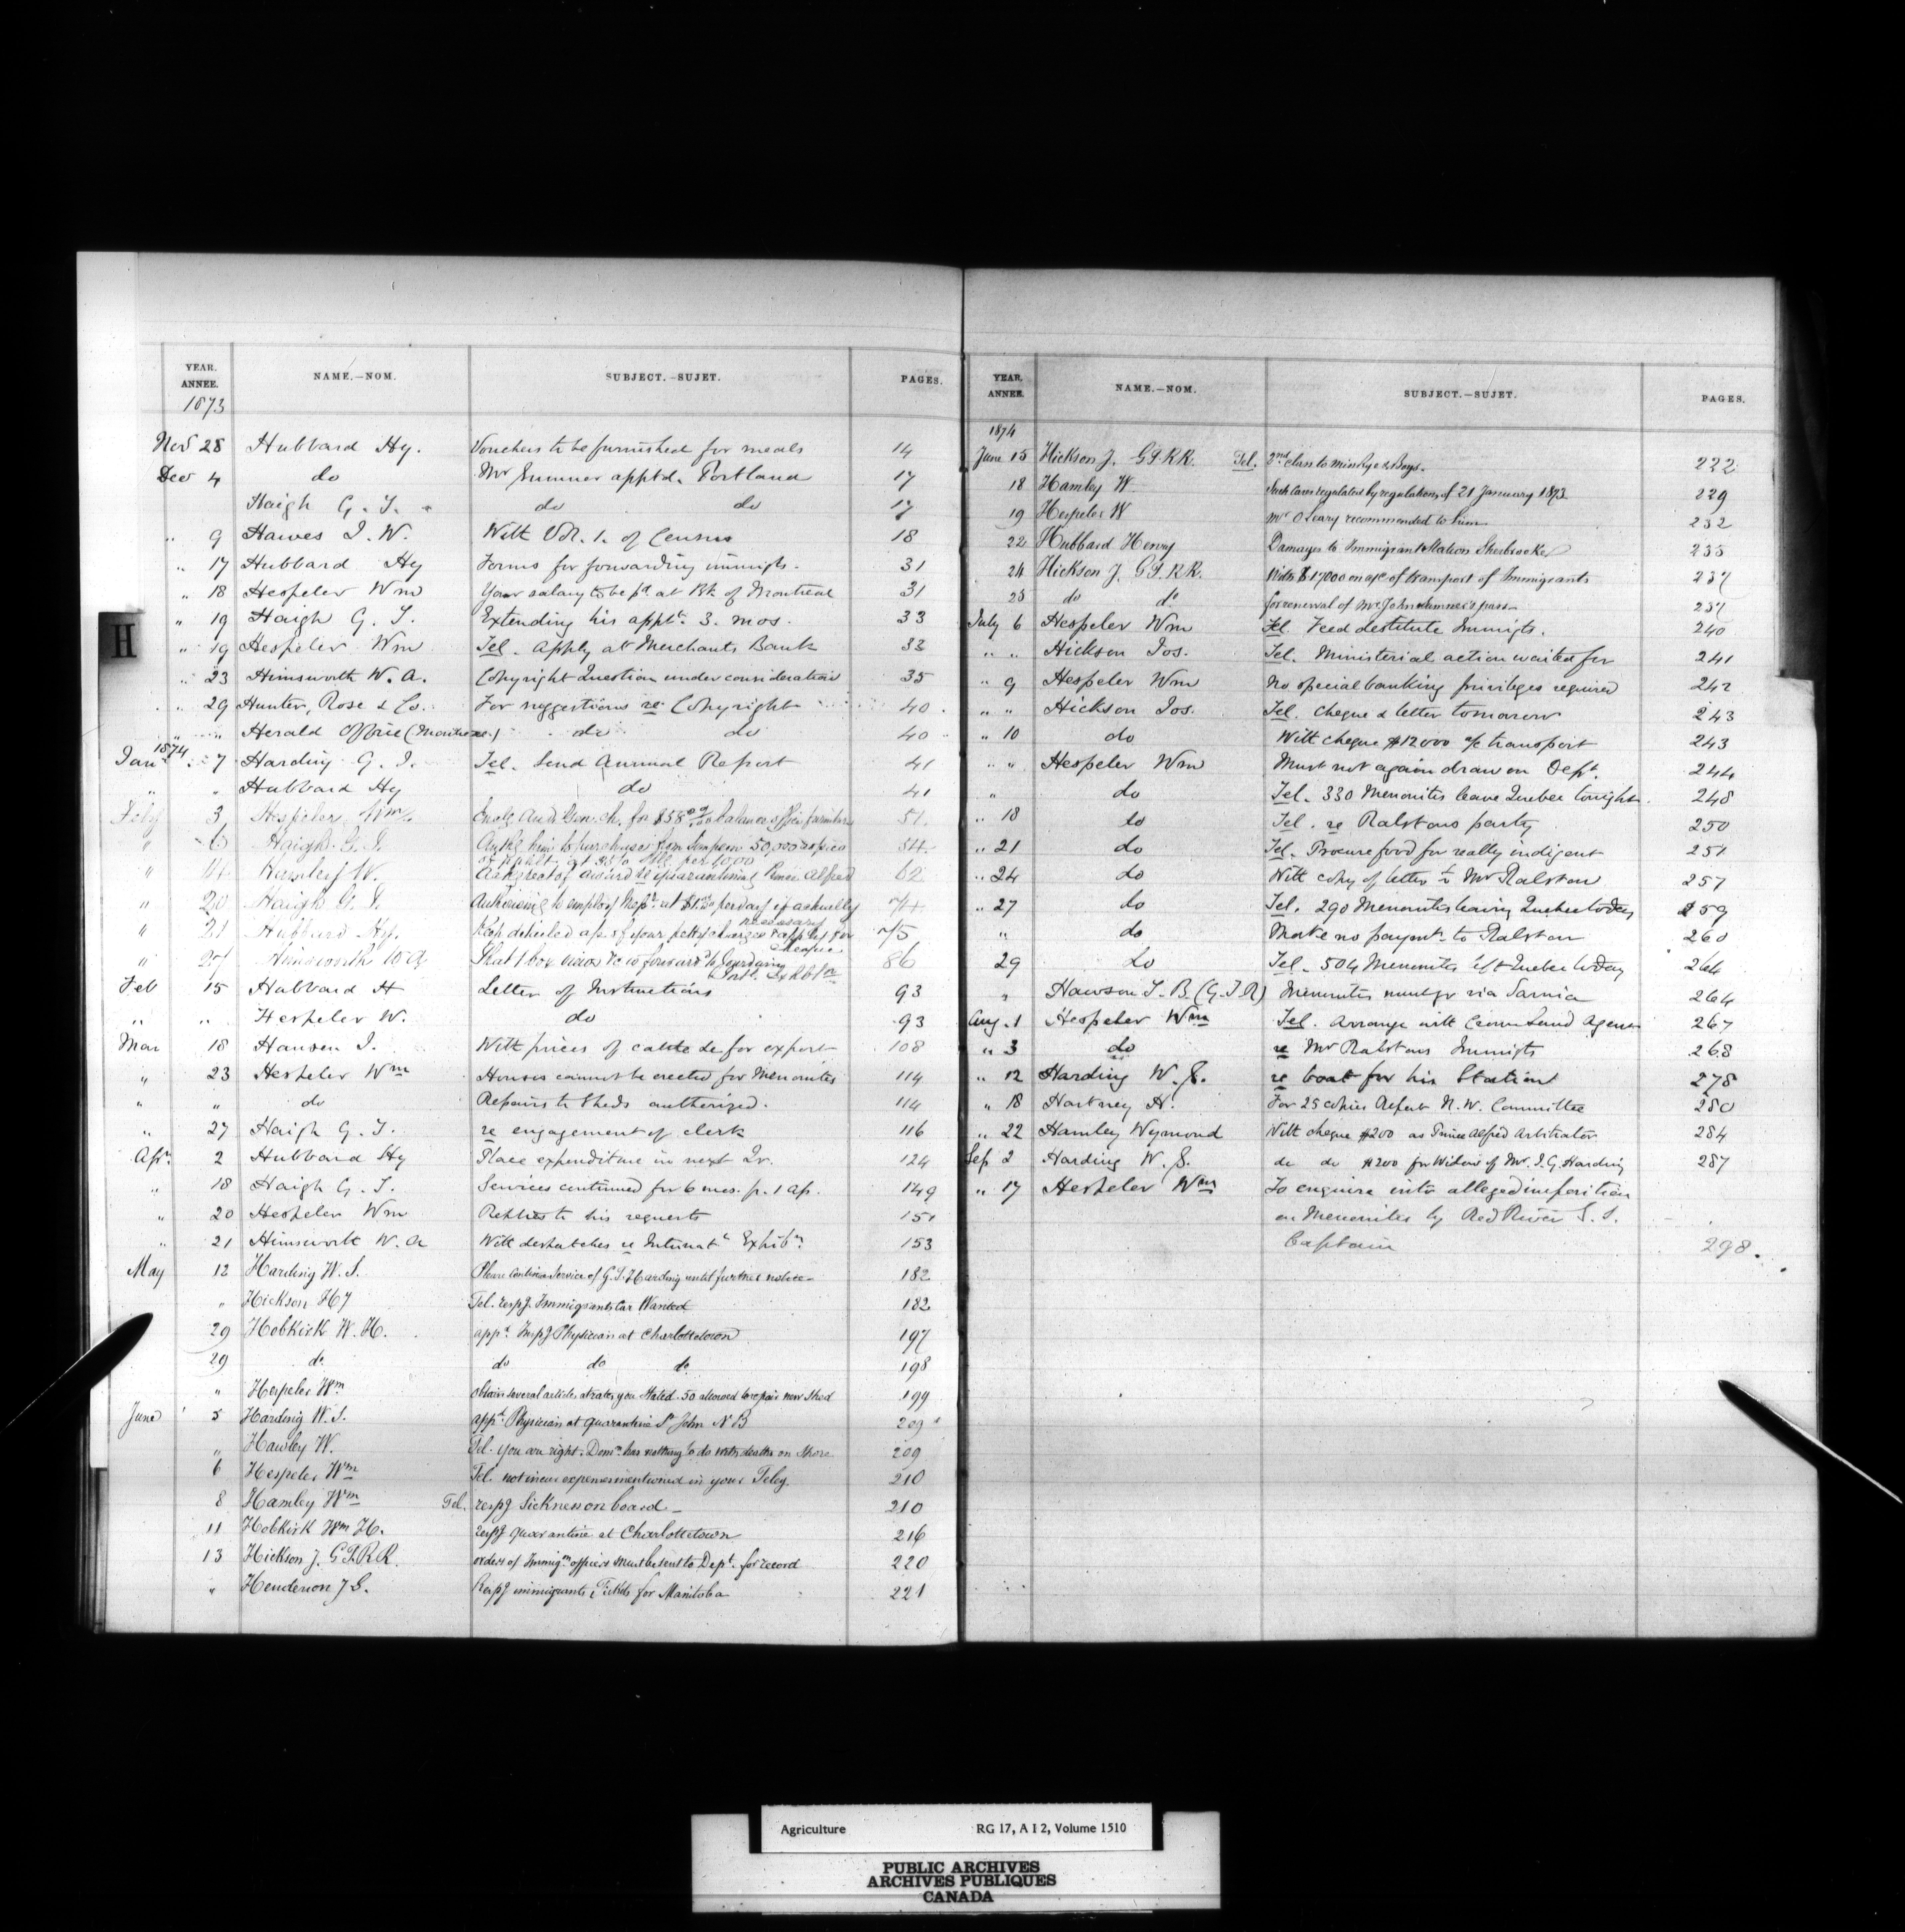 YEAR. ANNEE. NAME.—NOM. SUBJECT.—SUJET. PAGES.
1873
Nov 28 Hubbard Hy. Vouchers to be furnished for meals 14
Dec 4 do Mr Sumner apptd. Portland 17
Haigh G. T. do do 17
" 9 Hawes J. W. With Vol. 1. of Census 18
" 17 Hubbard Hy Forms for forwarding immigts. 31
" 18 Hespeler Wm Your salary to be pd at Bk of Montreal 31
" 19 Haigh G. T. Extending his appt. 3. mos. 33
" 19 Hespeler Wm Tel. Apply at Merchants Bank 33
" 23 Himsworth W. A. Copyright Question under consideration 35
" 29 Hunter, Rose & Co. For suggestions re Copyright 40
" " Herald Office (Montreal) do do 40
1874
Jan 7 Harding G. J. Tel. Send Annual Report 41
" " Hubbard Hy do 41
Feby 3 Hespeler, Wm. Enclg Aud Gen. ch. for balance office furniture 51.
" 6 Haigh G. T. Authg him to purchase from Simpson 50,000 copies 54
of per 1000
" 14 Hamley W. award re quarantining Prince Alfred 62
" 20 Haigh G. T. Authorising to employ per day if actually 74
necessary
" 21 Hubbard Hy. Keep detailed a/c of your petty charges & apply for 75
cheque
" 27 Himsworth W A That 1 box is forwardd to 86
Intl. Exhibtn
Feb 15 Hubbard H Letter of Instructions 93
" " Hespeler W. do 93
Mar 18 Hansen J. With prices of cattle &c for export 108
" 23 Hespeler Wm Houses cannot be erected for Menonites 114
" " do Repairs to Sheds authorized. 114
" 27 Haigh G. T. re engagement of clerk 116
Apr. 2 Hubbard Hy Place expenditure in next Qr. 124
" 18 Haigh G. T. Services continued for 6 mos. fr. 1 Ap. 149
" 20 Hespeler Wm Replies to his requests 151
" 21 Himsworth W. A With despatches re Internatl Exhibn. 153
May 12 Harding W. S. Please continue Service of G. J. Harding until further notice 182
" Hickson Hy Tel. respg Immigrants Car Wanted 182
29 Hobkirk W. H. appt. Inspg Physician at Charlottetown 197
29 do do do do 198
" Hespeler Wm obtain several articles at rates you stated. 50 allowed to repair new Shed 199
June 5 Harding W. S. appd. Physician at quarantine St John N B 209
" Hawley W. Tel. you are right. Domn. has nothing to do with deaths on Shore 209
6 Hespeler Wm Tel. not incur expenses mentioned in your Teleg. 210
8 Hamley Wm Tel. respg Sickness on board 210
11 Hobkirk Wm H. respg quarantine at Charlottetown 216
13 Hickson J. G.T.R.R. orders of Immign officers must be sent to Dept. for record 220
" Henderson J G. Respg immigrants Tickets for Manitoba 221
H
YEAR. ANNEE. NAME.—NOM. SUBJECT.—SUJET. PAGES.
1874
June 15 Hickson J. G.T.R.R. Tel. 2nd class to & Boys. 222
18 Hamley W. Such cases regulated by regulations of 21 January 1873 229
19 Hespeler W Mr O'Leary recommended to him 232
22 Hubbard Henry Damages to Immigrant Station Sherbrooke 235
24 Hickson J. G.T.R.R. With $17000 on a/c of transport of Immigrants 237
25 do do for renewal of Mr John Sumner's pass 237
July 6 Hespeler Wm Tel. Feed destitute Immigts. 240
" " Hickson Jos. Tel. Ministerial action waited for 241
" 9 Hespeler Wm No special banking privileges required 242
" " Hickson Jos. Tel. Cheque & letter tomorow 243
" 10 do With cheque $12000 a/c transport 243
" " Hespeler Wm Must not again draw on Dept. 244
" do Tel. 330 Menonites leave Quebec tonight 248
" 18 do Tel. re Ralstons party 250
" 21 do Tel. Procure food for really indigent 251
" 24 do With copy of letter to Mr Ralston 257
" 27 do Tel. 290 Menonites leaving Quebec today 259
" do Make no paymt. to Ralston 260
29 do Tel. 504 Menonites left Quebec today 264
" Hawson T. B. (G.T.R) Menonites must go via Sarnia 264
Aug. 1 Hespeler Wm Tel. Arrange with Crown Land Agents 267
" 3 do re Mr Ralstons Immigts 268
" 12 Harding W. S. re boat for his Station 278
" 18 Hartney H. For 25 copies Report N. W. Committee 280
" 22 Hamley Wymond With cheque $200 as Prince Alfred Arbitrator 284
Sep 2 Harding W. S. do do $200 for Widow of Mr. J. G. Harding 287
" 17 Hespeler Wm To enquire into alleged imposition
on Menonites by Red River S. S.
Captain 298.
Agriculture RG 17, A I 2, Volume 1510
PUBLIC ARCHIVES
ARCHIVES PUBLIQUES
CANADA